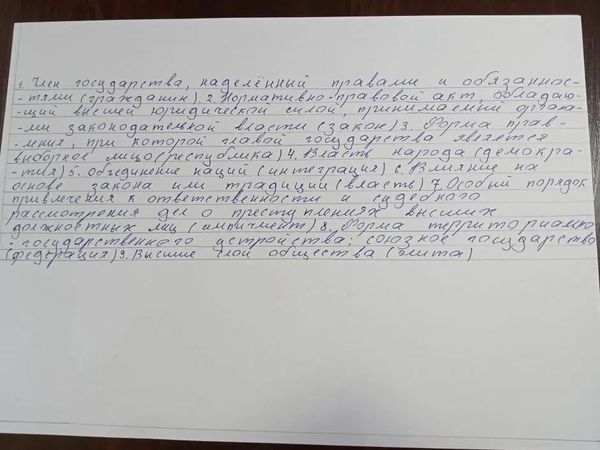 1. Член государства, наделённый правами и обязаннос-
-тями (гражданин). 2. Нормативно-правовой акт, обладаю-
-щий высшей юридической силой, принимаемый органа-
-ми законодательной власти (закон) 3. Форма прав-
-ления, при которой главой государства является
выборное лицо (республика) 4. Власть народа (демокра-
-тия) 5. Объединение наций (интеграция) 6. Влияние на
основе закона или традиции (власть) 7. Особый порядок
привлечения к ответственности и судебного
рассмотрения дел о преступлениях высших
должностных лиц (импичмент) 8. Форма территориально
-государственного устройства: союзное государство
(федерация) 9. Высшие слои общества (элита)